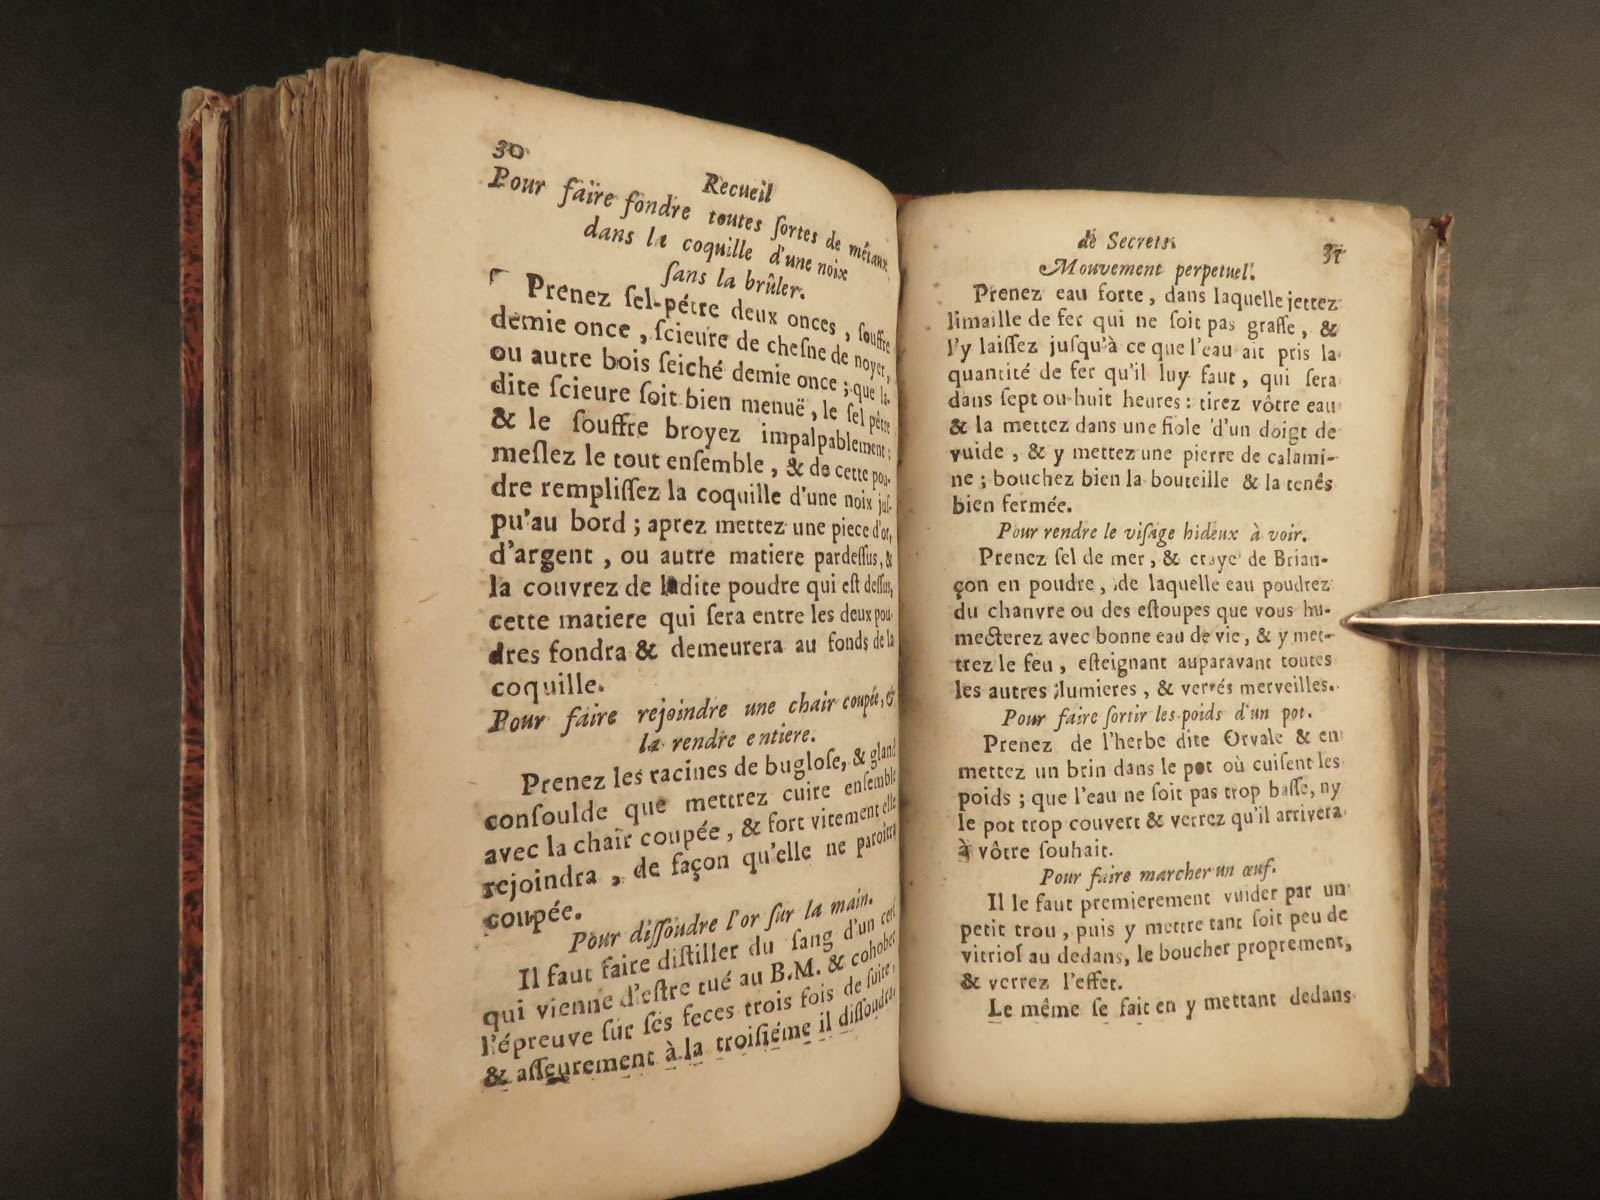 30
Recueil
Pour faire fondre toutes ſortes de métaux
dans la coquille d'une noix
ſans la brûler.
Prenez ſel-pétre deux onces, ſouffre
demie once, ſcieure de cheſne de noyer,
ou autre bois ſeiché demie once; que la-
dite ſcieure ſoit bien menuë, le ſel pétre
& le ſouffre broyez impalpablement;
meſlez le tout enſemble, & de cette pou-
dre rempliſſez la coquille d'une noix juſ-
qu'au bord; aprez mettez une piece d'or,
d'argent, ou autre matiere pardeſſus, &
la couvrez de ladite poudre qui eſt deſſus,
cette matiere qui ſera entre les deux pou-
dres fondra & demeurera au fonds de la
coquille.
Pour faire rejoindre une chair coupée, &
la rendre entiere.
Prenez les racines de bugloſe, & gland
conſoulde que mettrez cuire enſemble
avec la chair coupée, & fort vitement elle
rejoindra, de façon qu'elle ne paroîtra
coupée.
Pour diſſoudre l'or ſur la main.
Il faut faire diſtiller du ſang d'un cerf
qui vienne d'eſtre tué au B.M. & cohober
l'épreuve ſur ſes feces trois fois de ſuite,
& aſſeurement à la troiſiéme il diſſoudra
de Secrets.
31
Mouvement perpetuel.
Prenez eau forte, dans laquelle jettez
limaille de fer qui ne ſoit pas graſſe, &
l'y laiſſez juſqu'à ce que l'eau ait pris la
quantité de fer qu'il luy faut, qui ſera
dans ſept ou huit heures: tirez vôtre eau
& la mettez dans une fiole d'un doigt de
vuide, & y mettez une pierre de calami-
ne; bouchez bien la bouteille & la tenés
bien fermée.
Pour rendre le viſage hideux à voir.
Prenez ſel de mer, & craye de Brian-
çon en poudre, de laquelle eau poudrez
du chanvre ou des eſtoupes que vous hu-
mecterez avec bonne eau de vie, & y met-
trez le feu, eſteignant auparavant toutes
les autres lumieres, & verrés merveilles.
Pour faire ſortir les poids d'un pot.
Prenez de l'herbe dite Orvale & en
mettez un brin dans le pot où cuiſent les
poids; que l'eau ne ſoit pas trop baſſe, ny
le pot trop couvert & verrez qu'il arrivera
à vôtre ſouhait.
Pour faire marcher un œuf.
Il le faut premierement vuider par un
petit trou, puis y mettre tant ſoit peu de
vitriol au dedans, le boucher proprement,
& verrez l'effet.
Le même ſe fait en y mettant dedans